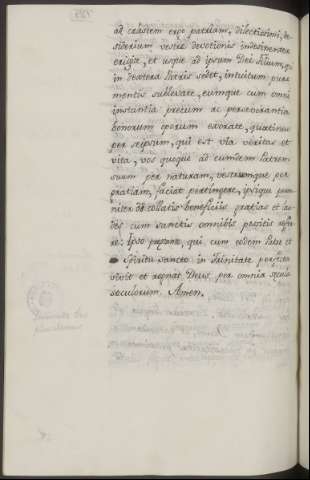 ad caelestem ergo patriam, dilectissimi, de-
siderium vestrae devotionis indesinenter
erigite, et usque ad ipsum Dei Filium, qui
in dextera Patris sedet, intuitum purae
mentis sublevate, eumque cum omni
instantia precum ac perseverantia
bonorum operum exorate, quatinus
per seipsum, qui est via veritas et
vita, vos quoque ad eumdem Patrem
suum per naturam, vestrumque per
gratiam, faciat pertingere, ipsique
de collatis beneficiis gratias et lau-
des cum sanctis omnibus
re: Ipso qui cum eodem Patre et
Spiritu sancto in Trinitate perfecta
vivit et regnat Deus per omnia secula
seculorum. Amen.